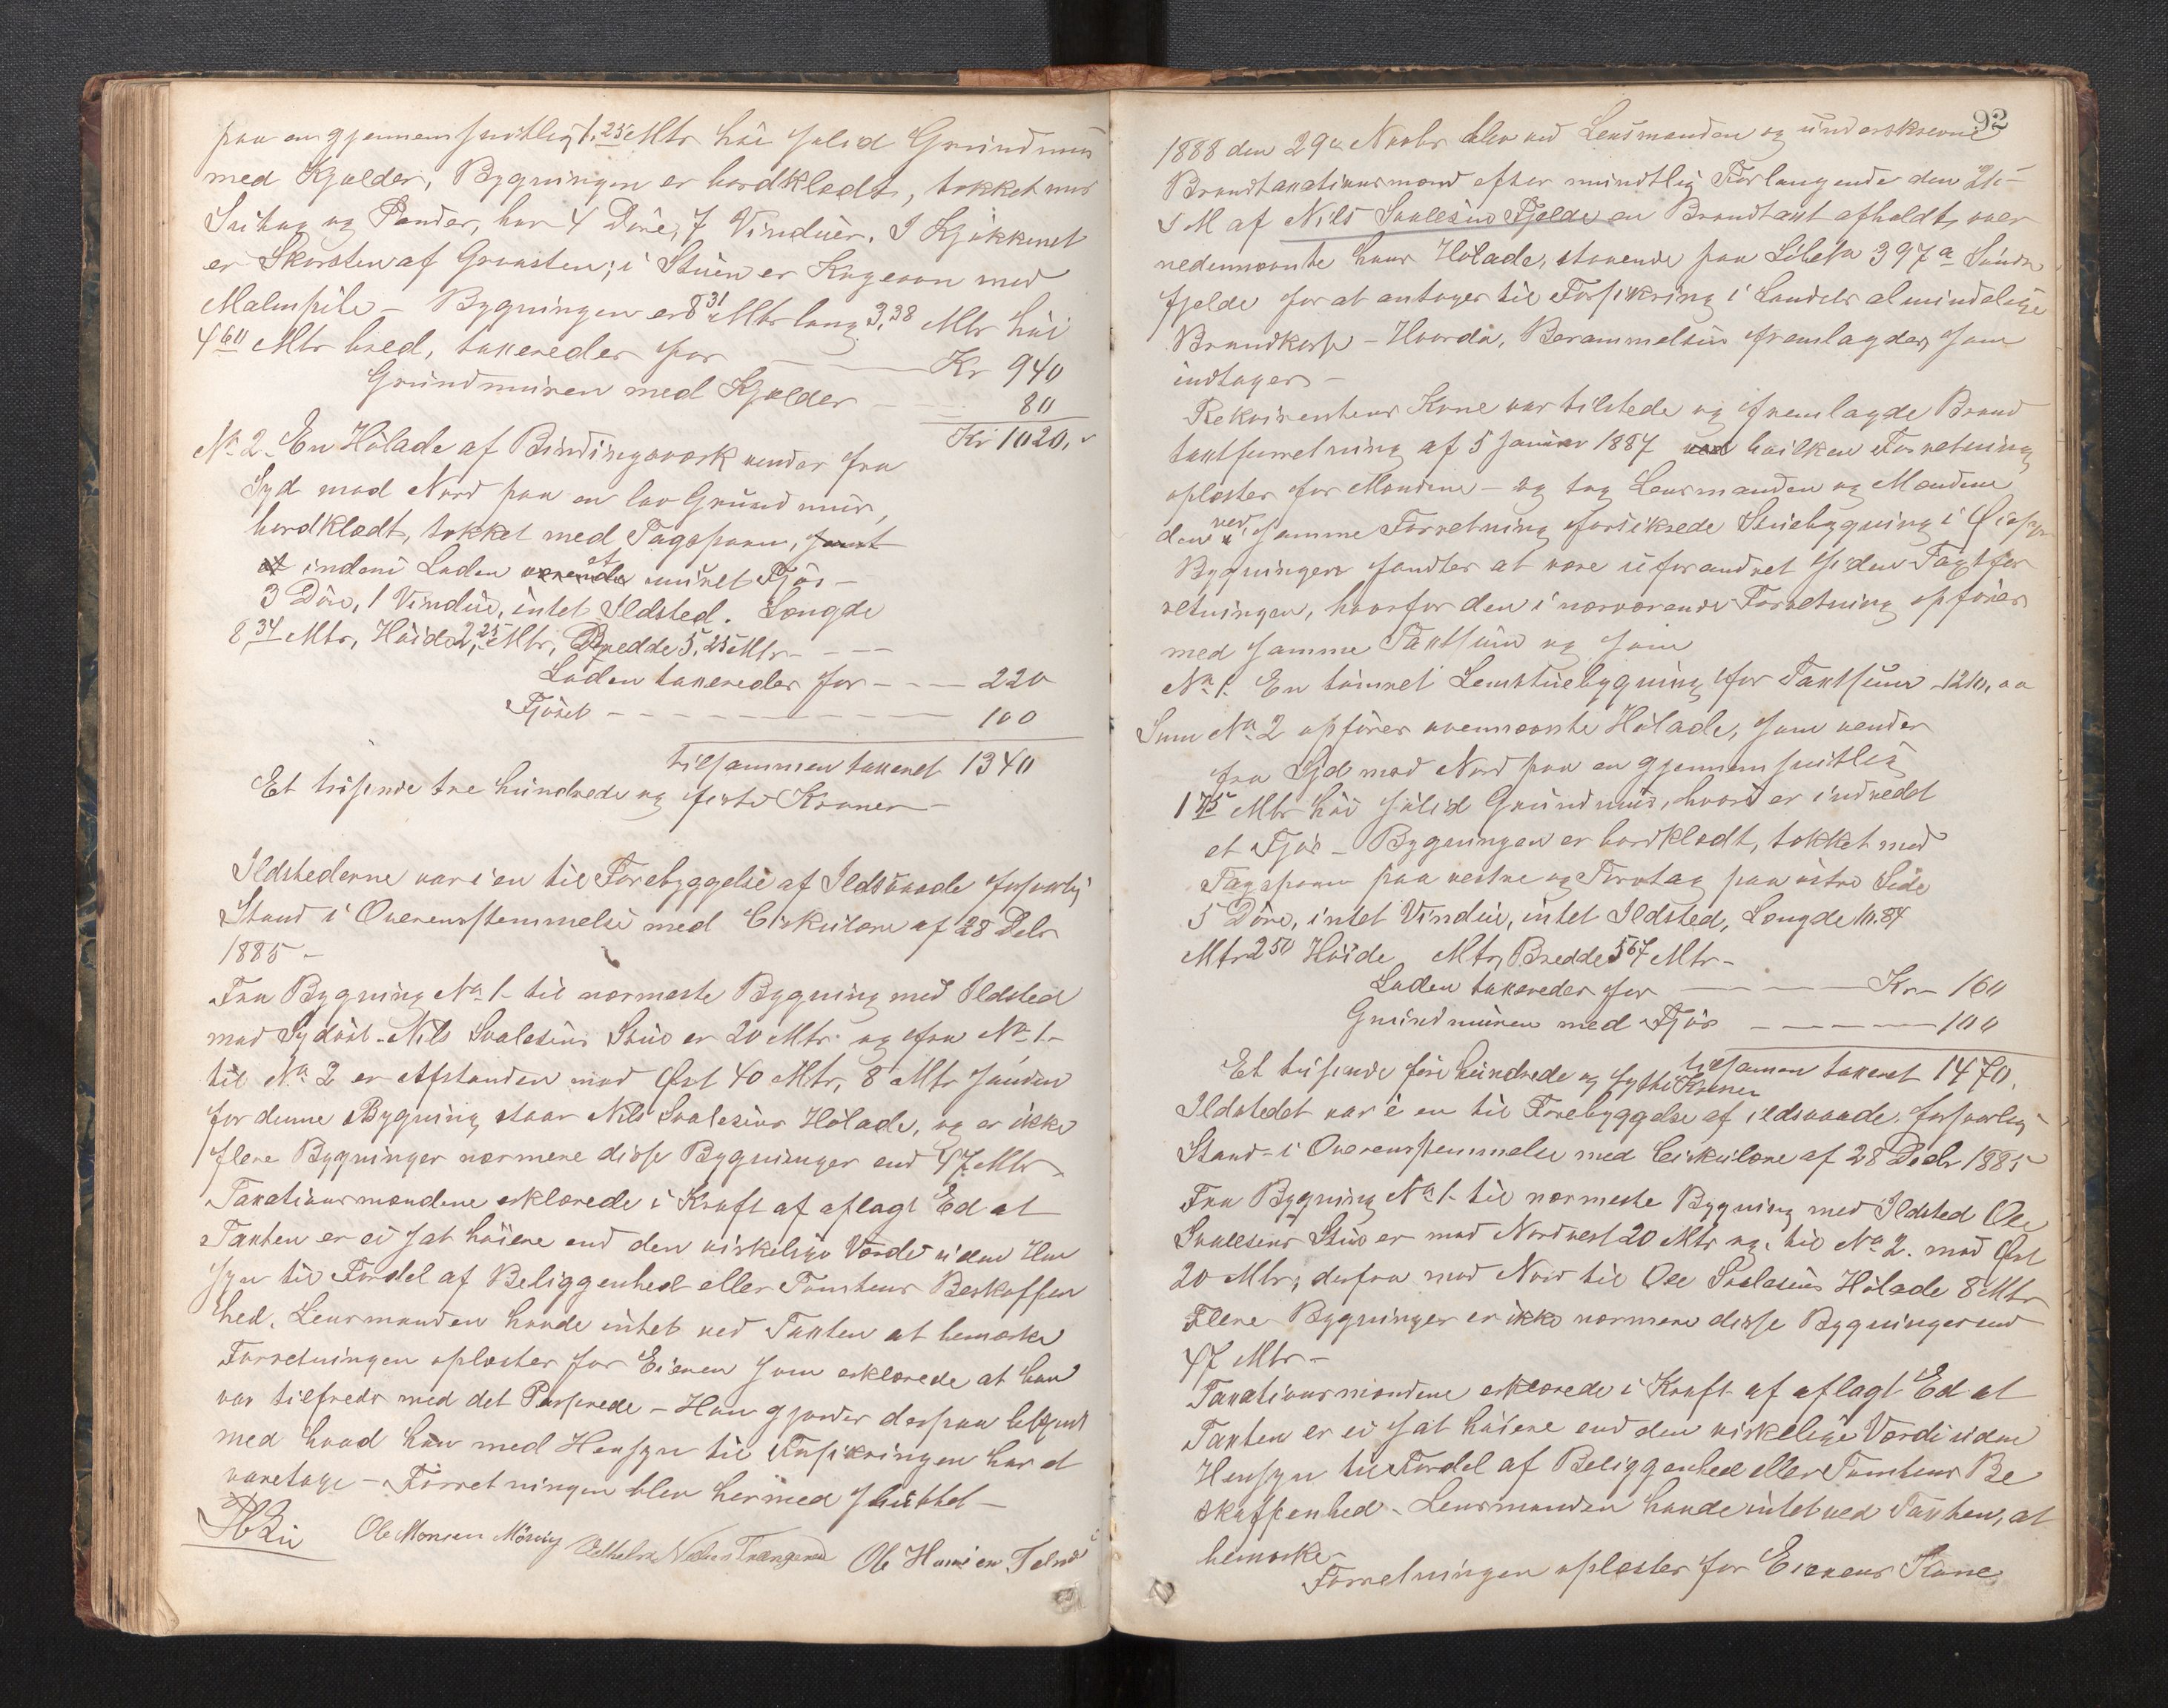 paa en gjennemsnitlig 1,25 Mtr höi solid Grundmur
med Kjælder, Bygningen er bordklædt, tækket med
og Pander, har 4 Döre, 7 Vinduer. I Kjökkenet
er Skorsten af Graasten; i Stuen er Kogeovn med
Malmpibe – Bygningen er 8,31 Mtr lang 3,38 Mtr höi
4,60 Mtr bred, taxeredes for — Kr 940
Grundmuren med Kjælder — 80
Kr 1020,
No 2. En Hölade af Bindingsværk vender fra
Syd mod Nord paa en lav Grundmur,
bordklædt, tækket med Tagspaan, samt
at indeni Laden værende et muret Fjös –
3 Döre, 1 Vindue, intet Ildsted. Længde
8,34 Mtr, Höide 2,25 Mtr, Bredde 5,25 Mtr – – –
Laden taxeredes for – – – 220
Fjöset – – – – 100
tilsammen taxeret 1340
Et tusende tre hundrede og firti Kroner –
Ildstederne var i en til Forebyggelse af Ildsvaade forsvarlig
Stand i Overensstemmelse med Cirkulære af 28 Debr
1885 –
Fra Bygning No 1 – til nærmeste Bygning med Ildsted
mod Sydöst – Nils Sjalesens Stue er 20 Mtr. og fra No 1 –
til No 2 er Afstanden mod Öst 40 Mtr, 8 Mtr sönden
for denne Bygning staar Nils Sjalesens Hölade, og er ikke
flere Bygninger nærmere disse Bygninger end 47 Mtr –
Taxationsmændene erklærede i Kraft af aflagt Ed at
Taxten er ei sat höiere end den virkelige Værdi uden Hen
syn til Fordel af Beliggenhed eller Tomtens Beskaffen
hed. Lensmanden havde intet ved Taxten at bemærke
Forretningen oplæstes for Eieren som erklærede at han
var tilfreds med det Passerede – Han gjordes derpaa bekjendt
med hvad han med Hensyn til Forsikringen har at
varetage – Forretningen blev hermed sluttet –
Ole Monsen Ole
92
1888 den 29de Novbr blev ved Lensmanden og underskrevne
Brandtaxationsmænd efter mundtlig Forlangende den 21de
s M af Nils Sjalesen Fjelde en Brandtaxt afholdt over
nedennævnte hans Hölade, staaende paa Löbe No 397a Söndre
fjelde for at antages til Forsikring i Landets almindelige
Brandkasse – Hvorda, Berammelsen fremlagdes som
indtages –
Rekvirentens Kone var tilstede og fremlagde Brand
taxtforretning af 5 Januar 1887 ved hvilken Forretning
oplæstes for Mændene – og tog Lensmanden og Mændene
den ved samme Forretning forsikrede Stuebygning i Öiesyn
Bygningen fandtes at være uforandret siden Taxtfor
retningen, hvorfor den i nærværende Forretning opföres
med samme Taxtsum og som
No 1. En tömret Lemstuebygning for Taxtsum – 1210,00
Som No 2 opföres ovennævnte Hölade, som vender
fra Syd mod Nord paa en gjennemsnitlig
1,75 Mtr höi solid Grundmur, hvori er indredet
et Fjös – Bygningen er bordklædt, tækket med
Tagspaan paa vestre og Torvtag paa östre Side
5 Döre, intet Vindue, intet Ildsted, Længde 10.84
Mtr 2,50 Höide Mtr, Bredde 5,67 Mtr –
Laden taxeredes for — Kr – 160
Grundmuren med Fjös — 100
tilsammen taxeret 1470,
Et tusende fire hundrede og sytti Kroner
Ildstedet var i en til Forebyggelse af ildsvaade forsvarlig
Stand – i Overensstemmelse med Cirkulære af 28 Decbr 1885
Fra Bygning No 1 – til nærmeste Bygning med Ildsted Ole
Sjalesens Stue er mod Nordvest 20 Mtr og til No 2. mod Öst
20 Mtr; derfra mod Nord til Ole Sjalesens Hölade 8 Mtr
Flere Bygninger er ikke nærmere disse Bygninger end
47 Mtr –
Taxationsmændene erklærede i Kraft af aflagt Ed at
Taxten er ei sat höiere end den virkelige Værdi uden
Hensyn til Fordel af Beliggenhed eller Tomtens Be
skaffenhed – Lensmanden havde intet ved Taxten, at
bemærke –
Forretningen oplæstes for Eierens Kone